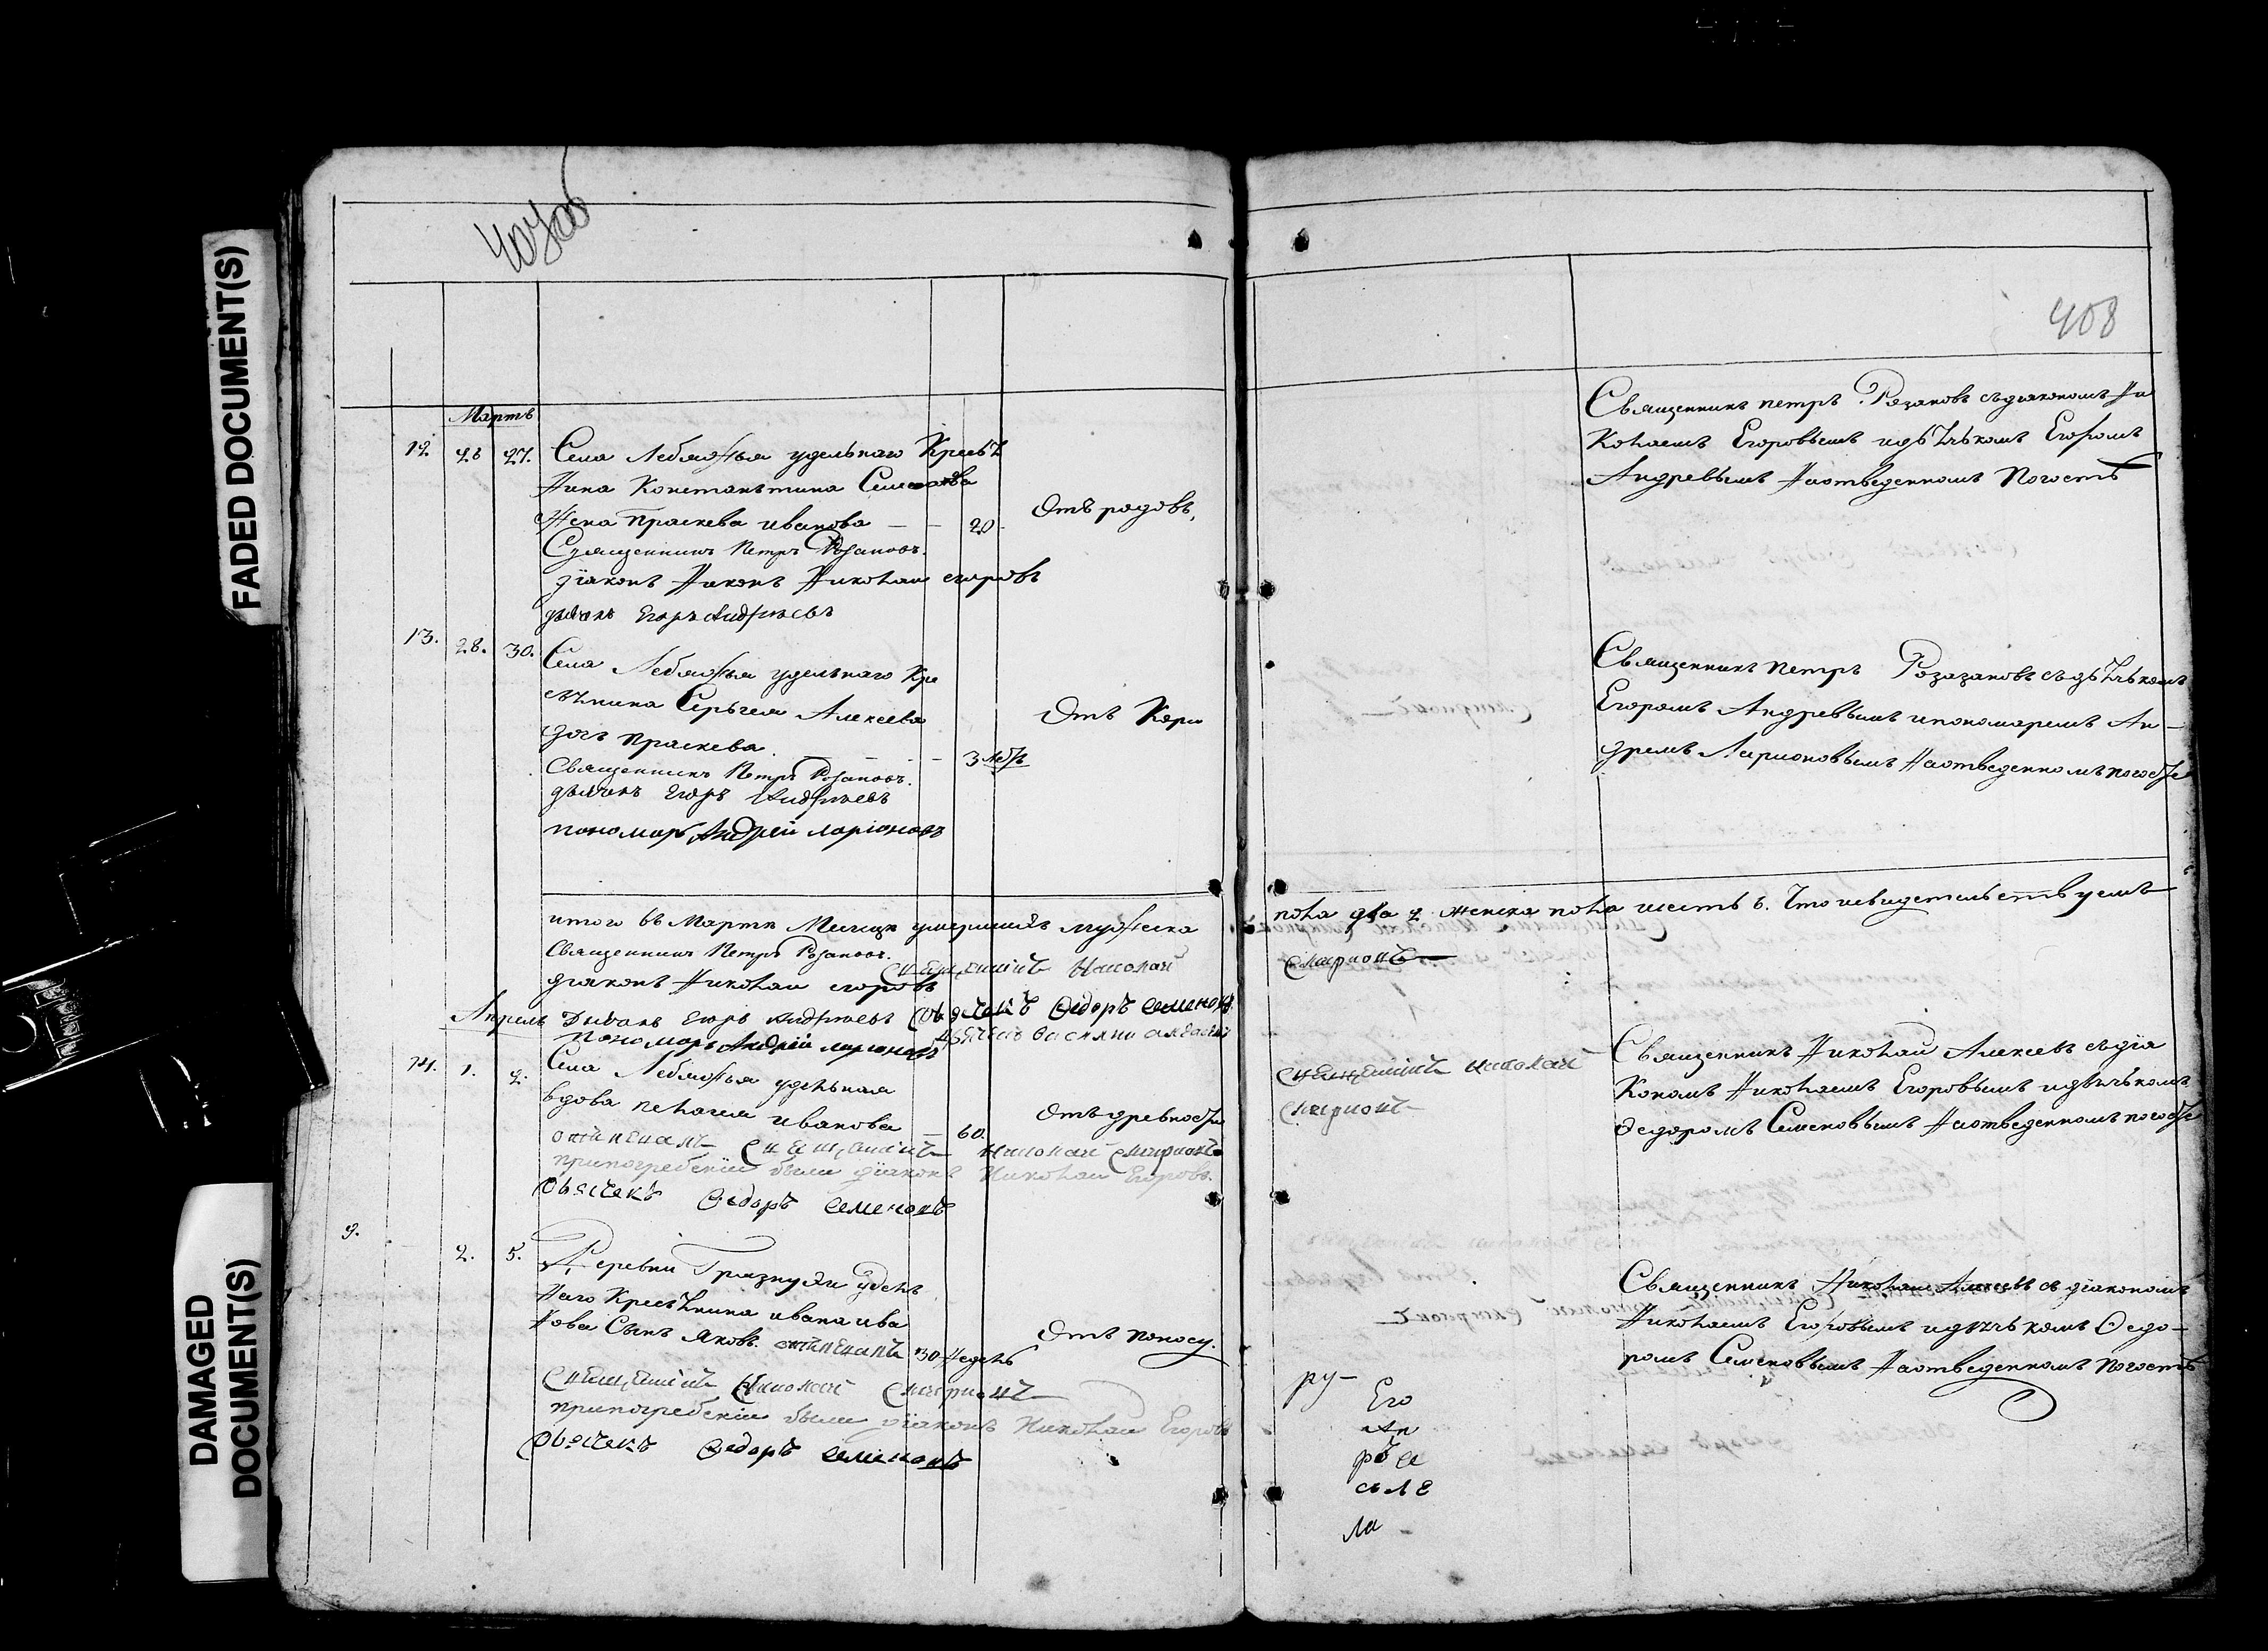 FADED DOCUMENT(S)
DAMAGED
DOCUMENT(S)
407об
408
Мартъ
12 28 27. Села Лебяжья удельнаго Кресть
нина Констанътина Семенова
жена праскева иванова — — 20 Отъ родовъ,
Священникъ Петръ Розановъ.
діаконъ Николаи егоровъ
дьячокъ Егоръ Андрѣевъ
13. 28. 30. Села Лебяжья удельнаго Кре
стьнина Серьгея Алексеева
дочь праскева. — — 3 Отъ Кори
Священникъ Петръ Розановъ.
дьячокъ Егоръ Андрѣевъ
пономарь Андрей ларіоновъ
итого въ Мартѣ Месяцѣ умершихъ мужеска
Священникъ Петръ Розановъ.
Священникъ Николай
діаконъ Николаи егоровъ
Апрель Дьячокъ Егоръ Андрѣевъ Ѳедоръ Семеновъ
пономарь Андрей ларіоновъ
14. 1. 2. Села Лебяжья удельная
вдова пелагея иванова — 60. Отъ древности
отпевалъ Священникъ Николай Смирновъ
припогребеніи были діаконъ Николаи Егоровъ.
Ѳедоръ Семеновъ
9. 2. 5. Деревни Грязнухи удель
наго Крестьнина ивана ива
нова Сынъ Яковъ. отпевалъ 30 недель Отъ поносу.
Священникъ Николай Смирновъ
припогребеніи были діаконъ Николаи Егоровъ
Ѳедоръ Семеновъ
Священникъ петръ Розановъ съдиакономъ Ни
колаемъ Егоровымъ идьячькомъ Егоромъ
Андревымъ Наотведенномъ Погостѣ
Священникъ петръ Розазановъ съдьячькомъ
Егоромъ Андревымъ ипономаремъ Ан-
дреемъ Ларионовымъ Наотведенномъ погосте
пола два 2 женска пола шесть 6. Что исвидетельствуемъ
Смирновъ
Священникъ Николай
Смирновъ
Священникъ Николай Алексевъ съдіа
кономъ Николаемъ Егоровымъ идьячькомъ
Ѳедоромъ Семеновымъ Наотведенномъ погосте
Священникъ Николаи Алексевъ съ діакономъ
Николаемъ Егоровымъ идьячькомъ Ѳедо-
ромъ Семеновымъ Наотведенномъ погостѣ
ру-
Его
Ан
ла